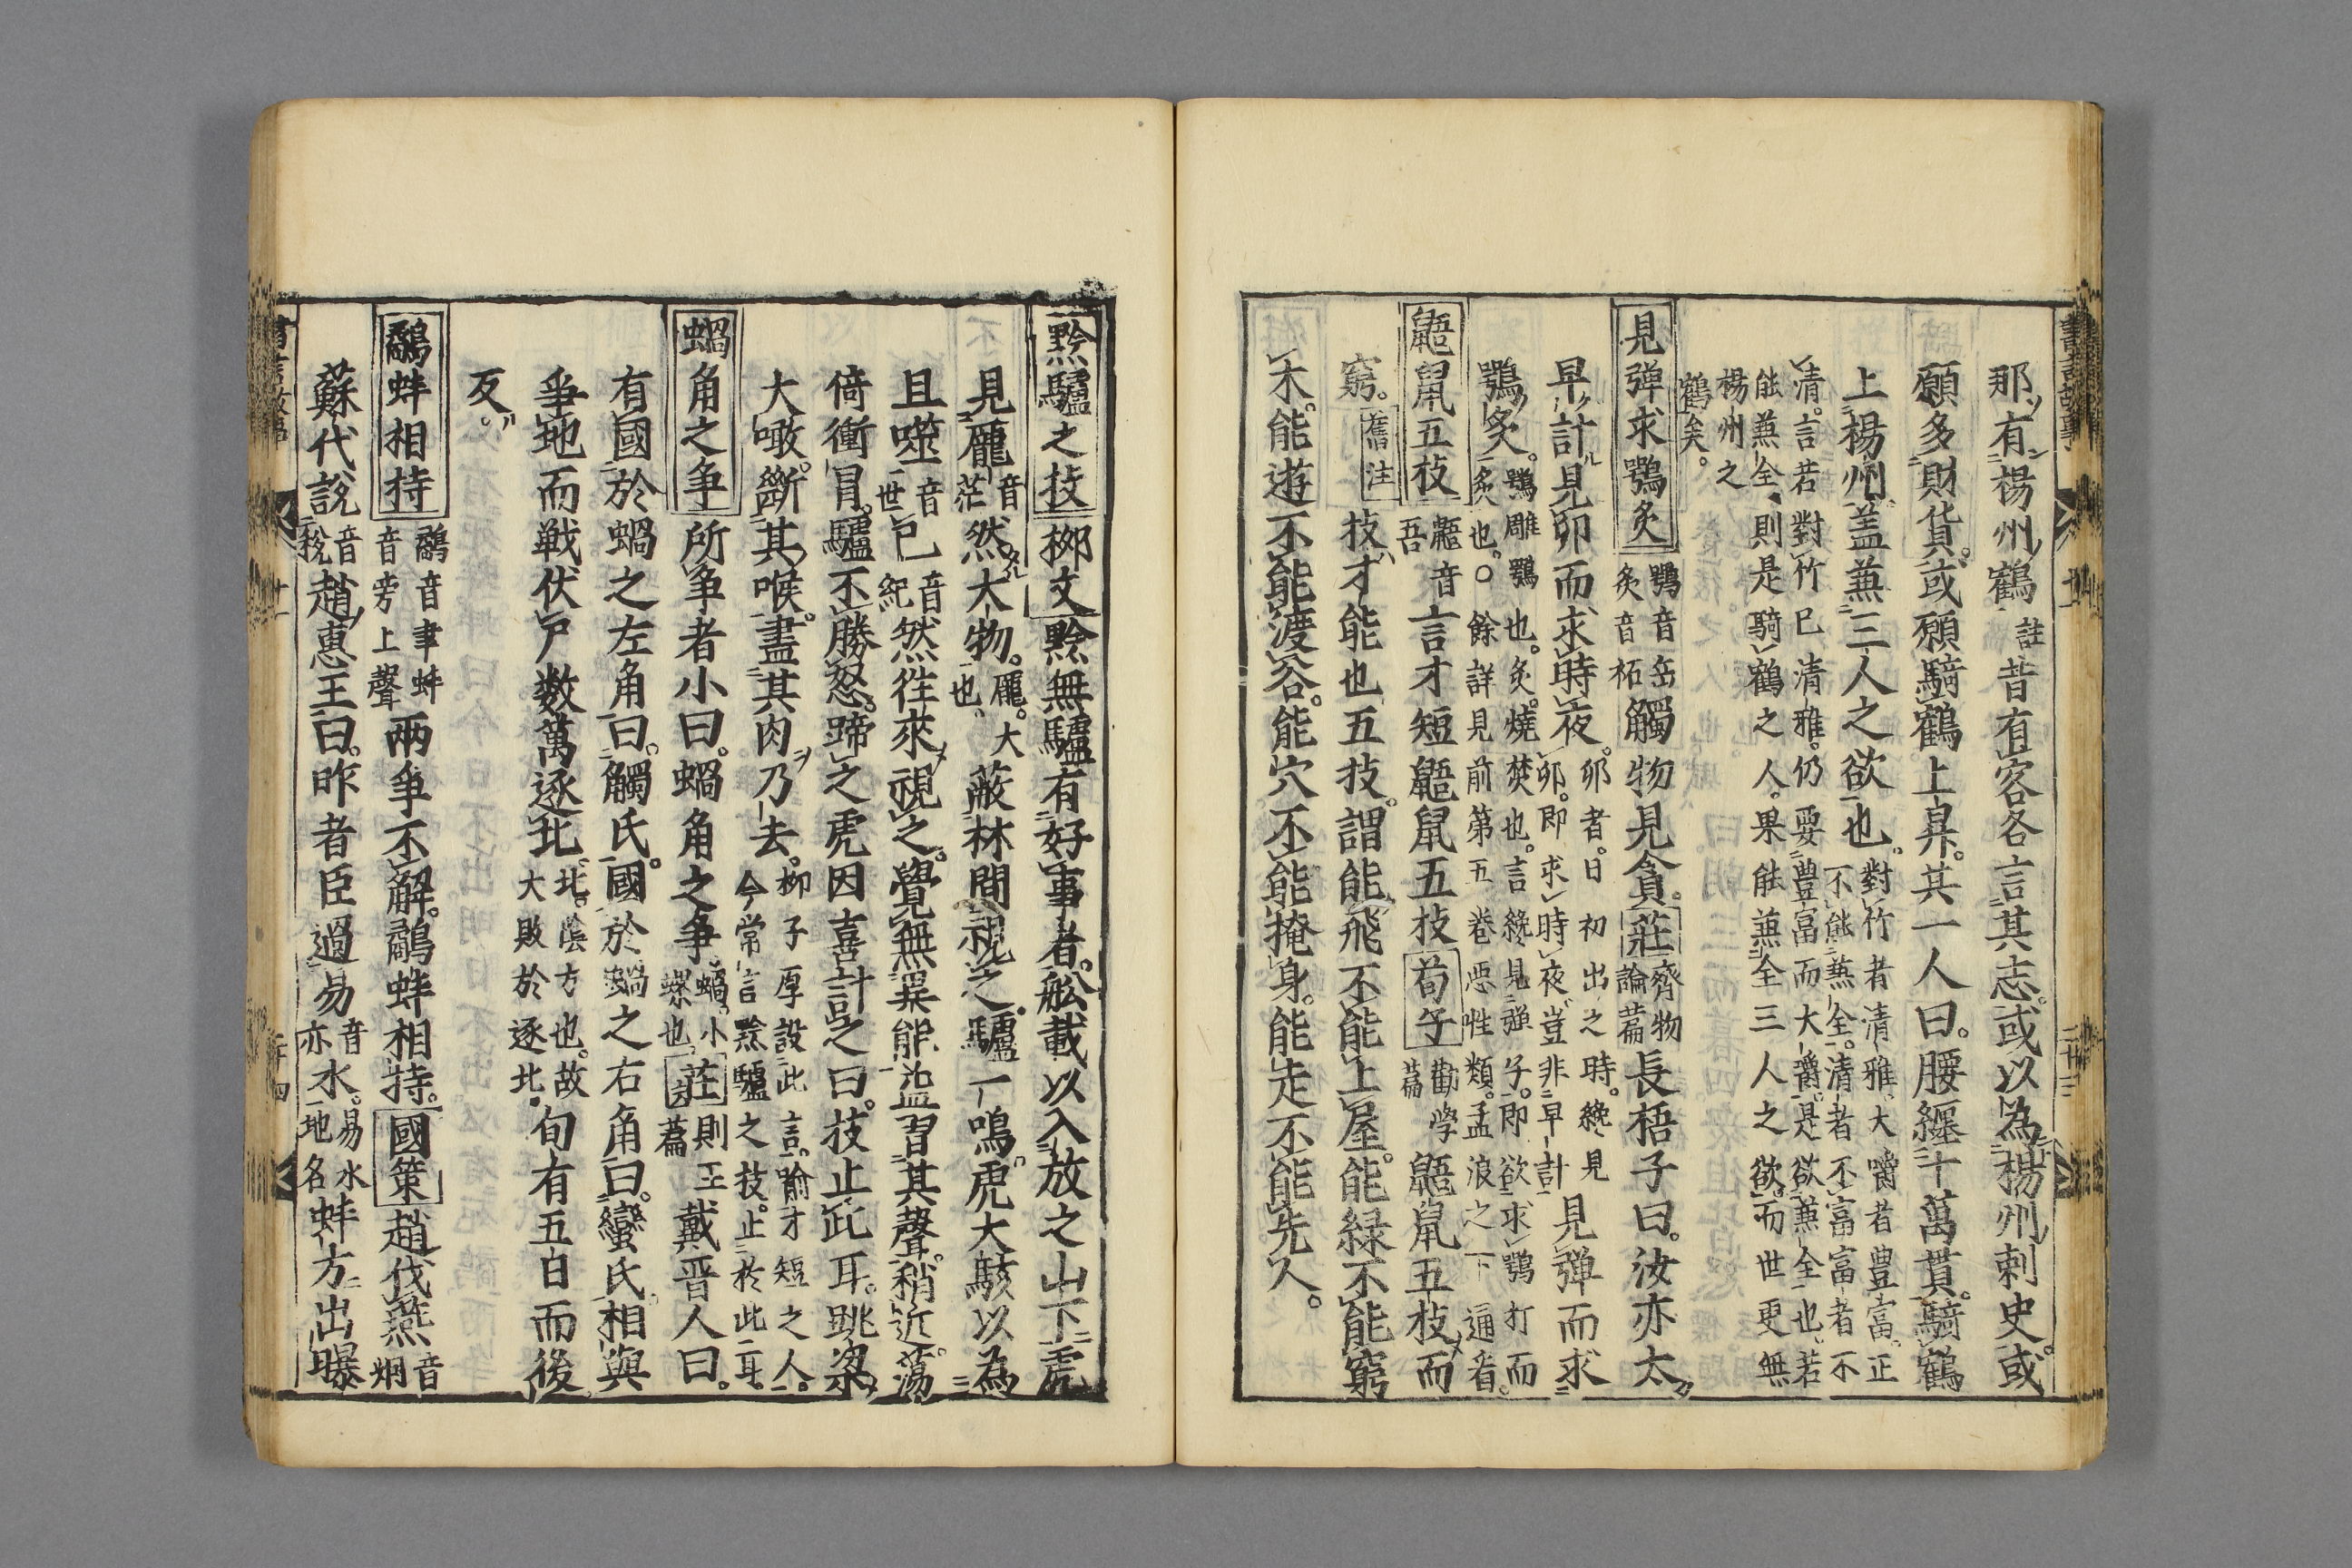 那有楊州鶴註昔有客各言其志或以為楊州刺史或
願多財貨或願騎鶴上昇其一人曰腰纏十萬貫騎鶴
上楊州盖蒹三人之欲也對竹者清雅大嚼者豊富正不
不能蒹全清者不富富者不
清言若對竹已清雅仍要豊富而大嚼是欲蒹全也若
能蒹全則是騎鶴之人果能蒹全三人之欲而世更無
楊州之
鶴矣
見弾求鴞炙鴞音岳炙音柘觸物見貪莊齊物論篇長梧子曰汝亦太
早計見卵而求時夜卵者日初出之時纔見卵即求時夜豈非早計見弾而求
鴞炙鴞雕鴞也炙燒焚也言纔見弾子即欲求鴞打而炙也○餘詳見前第五巻悪性類孟浪之下通看
鼯鼠五技鼯音吾言才短鼯鼠五技荀子勸學篇鼯鼠五技而
窮舊注技才能也五技謂能飛不能上屋能緑不能窮
木能遊不能渡谷能穴不能掩身能走不能先人
黔驢之技柳文黔無驢有好事者舩載以入放之山下虎
見龐音茫然大物龐大也蔽林間視之驢一鳴虎大駭以為
且噬音世已音紀然徃來視之覺無異能益習其聲稍近蕩
倚衝冐驢不勝怒蹄之虎因喜計之曰技止此耳跳梁
大㘚斷其喉盡其肉乃去柳子厚設此言喻才短之人今常言黔驢之技止於此耳
蝸角之争所争者小曰蝸角之争蝸小螺也莊子則王篇戴晋人曰
有國於蝸之左角曰觸氏國於蝸之右角曰蠻氏相與
争地而戦伏尸数萬逐北北陰方也故大敗於逐北旬有五日而後
反
鷸蚌相持鷸音聿蚌音旁上聲兩争不解鷸蚌相持國策趙伐燕音烟
蘇代說音稅趙惠王曰昨者臣過易音亦水易水地名蚌方出曝